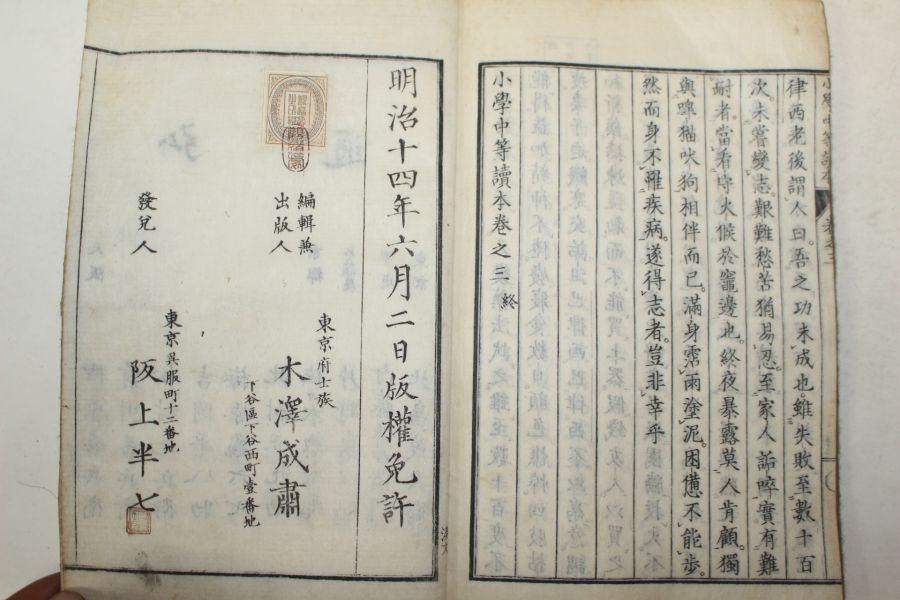 律西老後謂人曰。吾之功未成也。雖失敗至數十百
次。未嘗變志。艱難愁苦猶易忍。至家人詬啐。實有難
耐者。當看守火候於竈邊也。終夜暴露。莫人肯顧。獨
與嗥猫吠狗相伴而已。滿身霑雨塗泥。困憊不能步。
然而身不罹疾病。遂得志者。豈非幸乎
小學中等讀本卷之三 終
明治十四年六月二日版權免許
東京府士族
木澤成肅
下谷區下谷西町壹番地
編輯兼
出版人
東京呉服町十二番地
阪上半七
發兌人